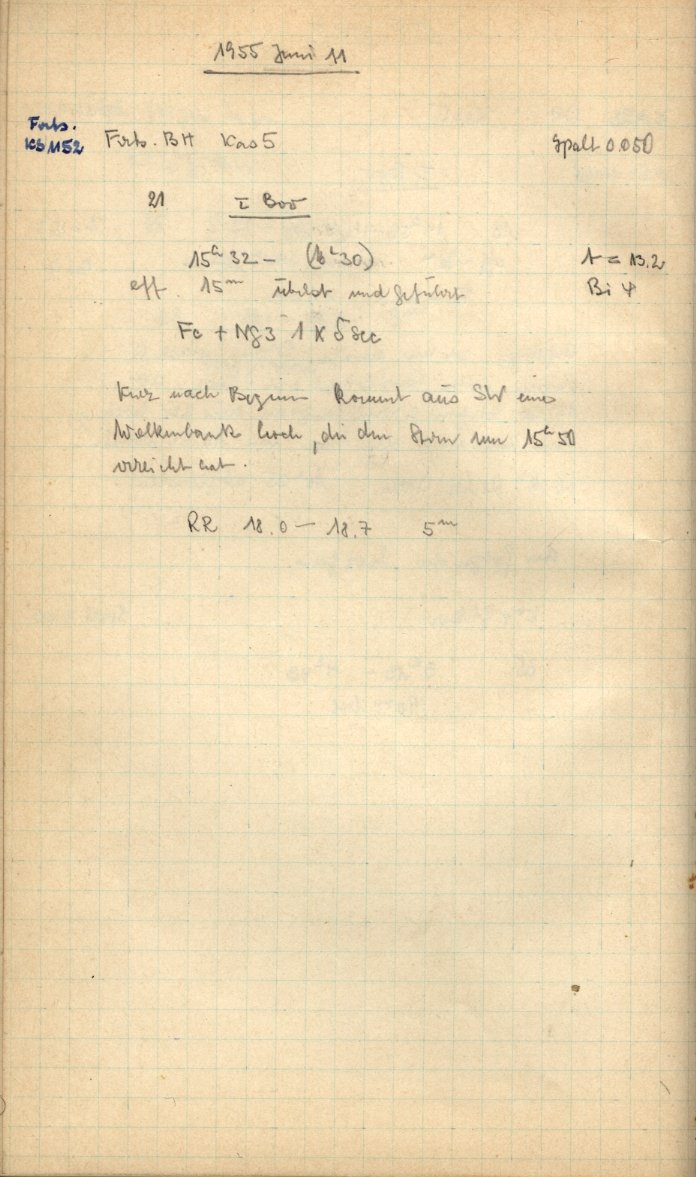 1955 Juni 11
Forts.
KS 1152
Forts. BH Kas 5
Spalt 0.050
21 ι Boo
15ʰ 32 – (16ʰ 30)
t = 13.2
eff. 15ᵐ und geführt
Bi 4
Fe + Ng3 1 x 5 sec
Kurz nach Beginn kommt aus SW eine
Wolkenbank hoch, die den Stern um 15ʰ 50
erreicht hat.
RR 18.0 – 18.7 5ᵐ